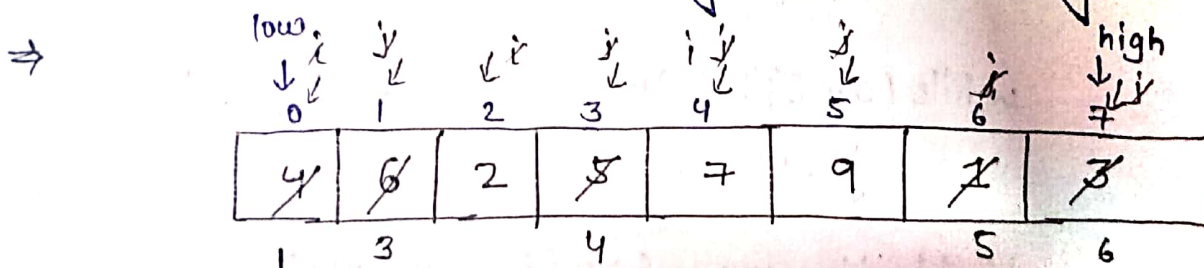 ⇒ low i j i j i j j j high j
0 1 2 3 4 5 6 7
4 6 2 5 7 9 1 3
1 3 4 5 6